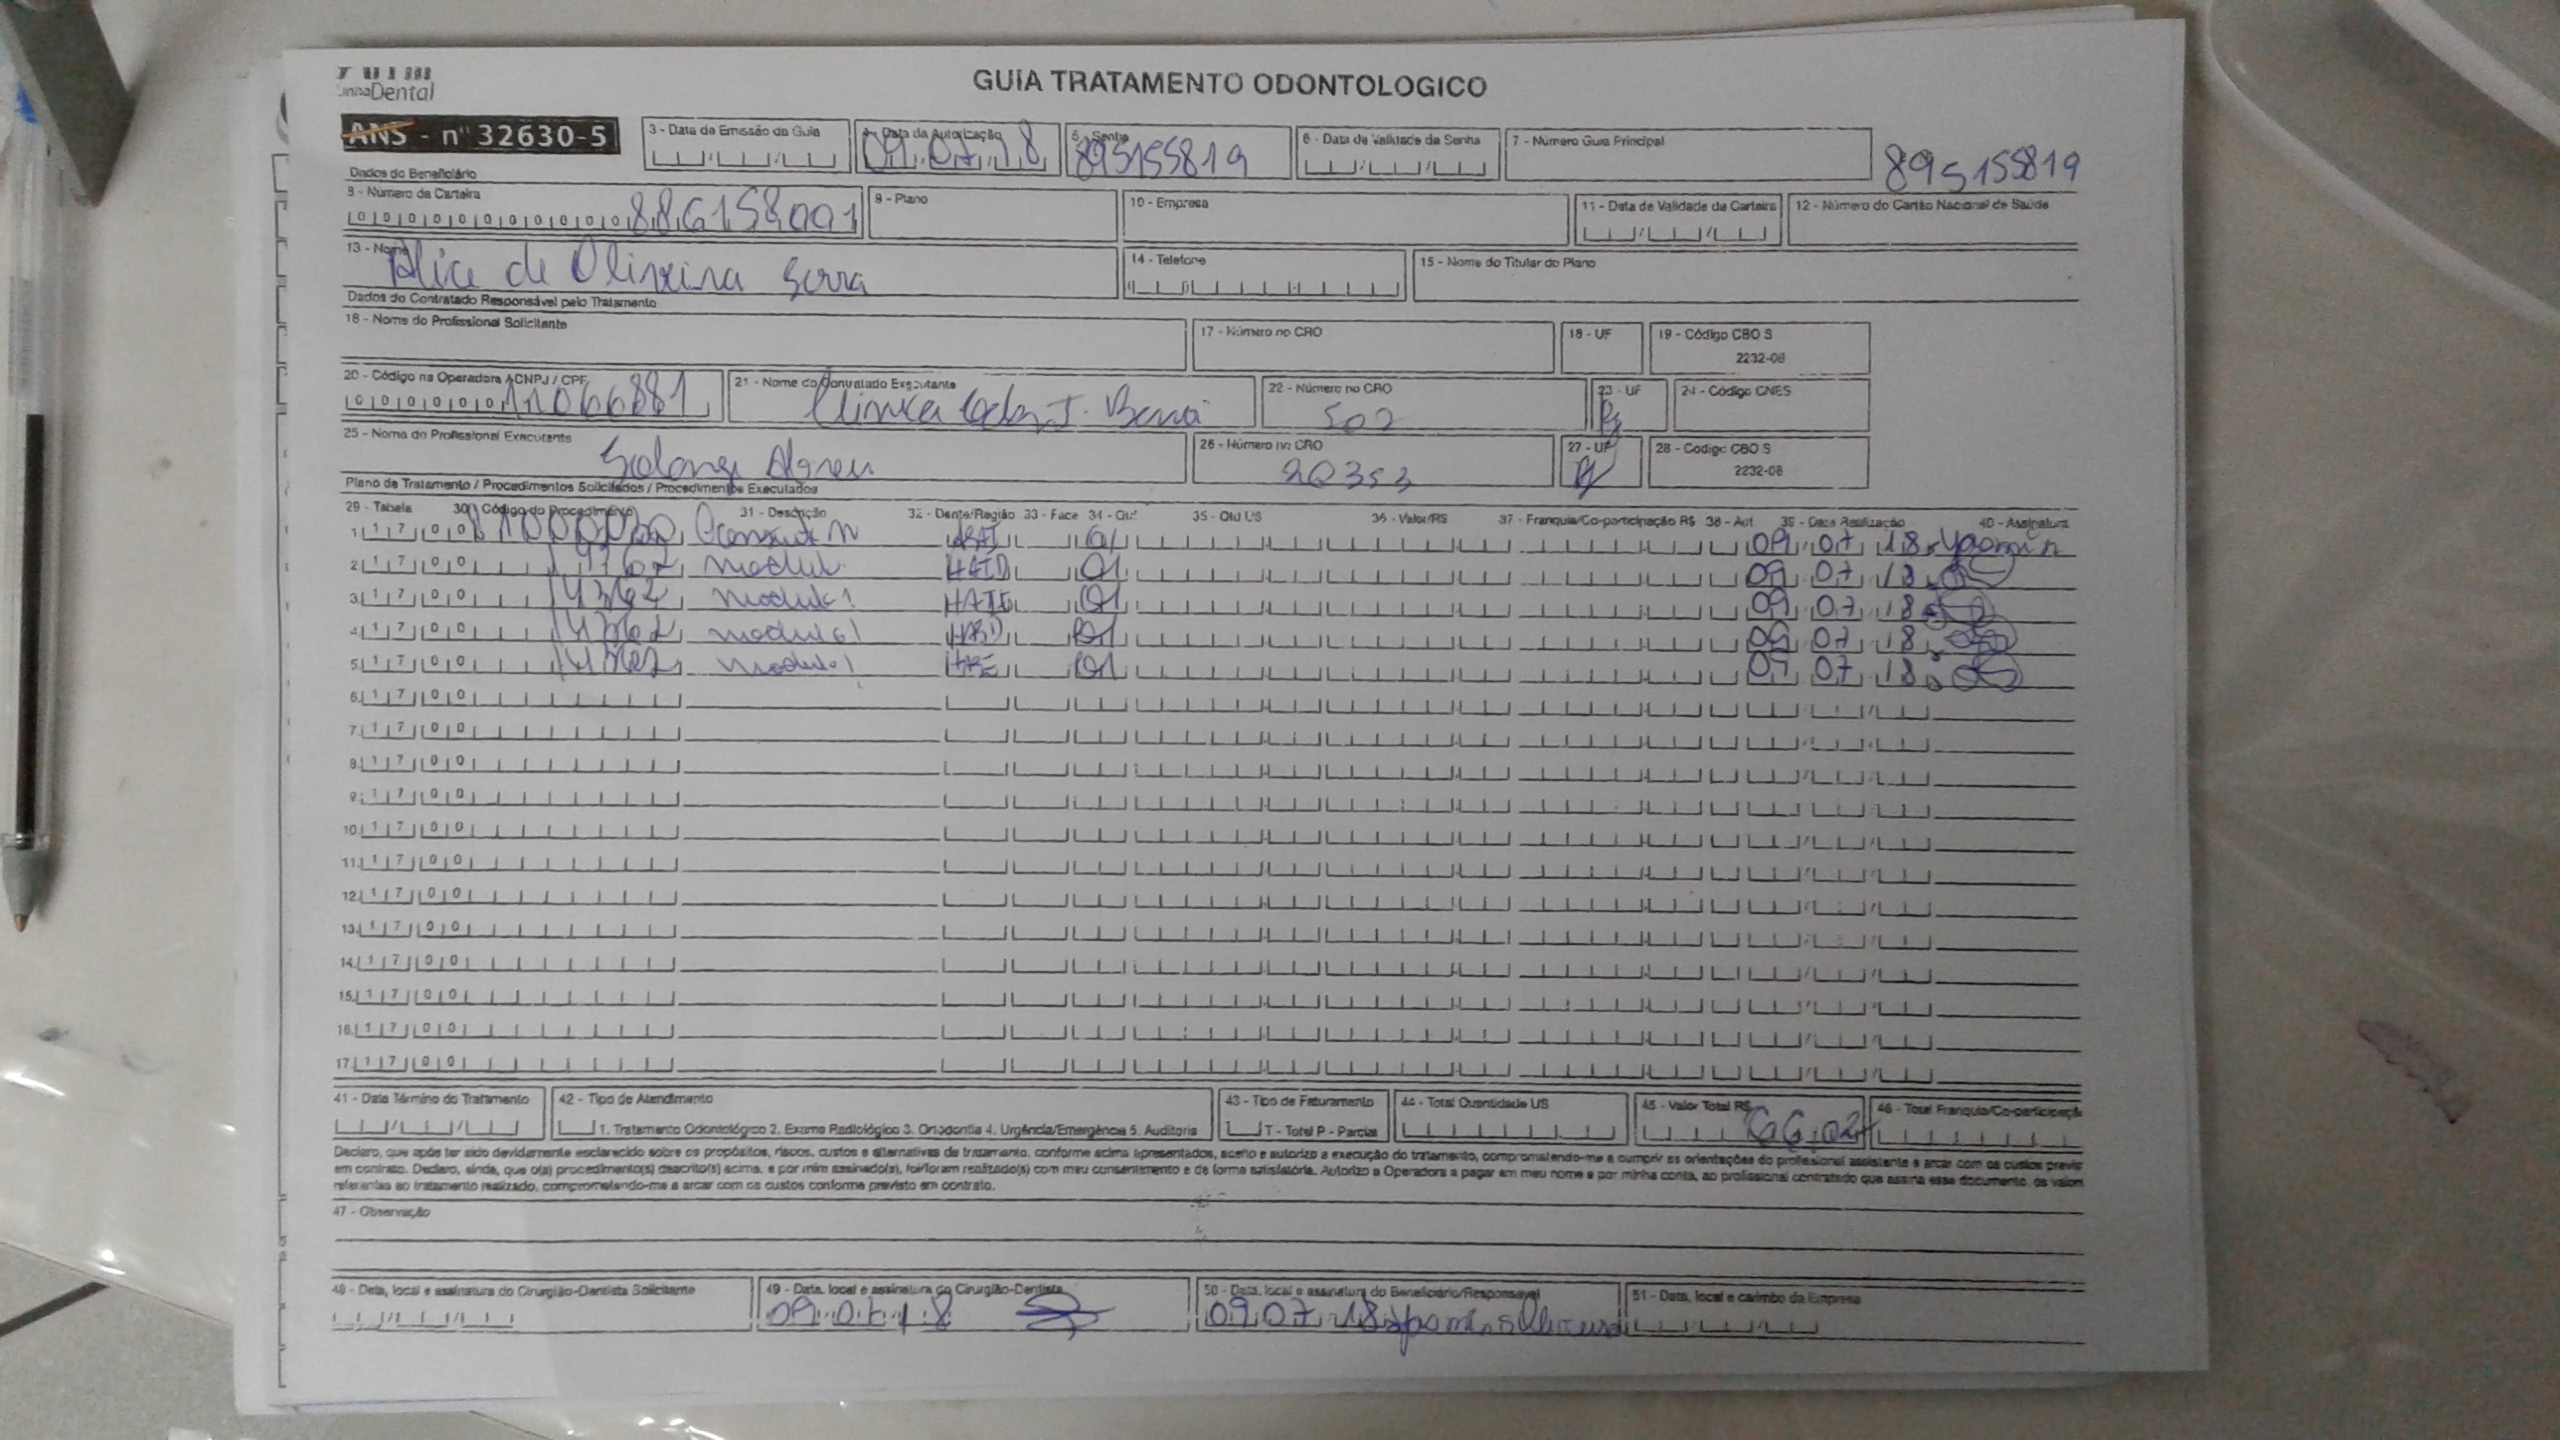 Dental
GUIA TRATAMENTO ODONTOLOGICO
ANS - nº 32630-5
3 - Data de Emissão da Guia
4 - Data da Autorização 09 07 18
5 - Senha 895155819
6 - Data de Validade da Senha
7 - Número Guia Principal
895155819
Dados do Beneficiário
8 - Número da Carteira 00000000000 886158001
9 - Plano
10 - Empresa
11 - Data de Validade da Carteira
12 - Número do Cartão Nacional de Saúde
13 - Nome Alice de Oliveira Serra
14 - Telefone
15 - Nome do Titular do Plano
Dados do Contratado Responsável pelo Tratamento
16 - Nome do Profissional Solicitante
17 - Número no CRO
18 - UF
19 - Código CBO S 2232-08
20 - Código na Operadora / CNPJ / CPF 11066881
21 - Nome do Contratado Executante Clinica
22 - Número no CRO 502
23 - UF RJ
24 - Código CNES
25 - Nome do Profissional Executante Solange Abreu
26 - Número no CRO 20353
27 - UF RJ
28 - Codigo CBO S 2232-08
Plano de Tratamento / Procedimentos Solicitados / Procedimentos Executados
29 - Tabela 30 - Código do Procedimento 31 - Descrição 32 - Dente/Região 33 - Face 34 - Qtd 35 - Qtd US 36 - Valor/R$ 37 - Franquia/Co-participação R$ 38 - Aut 39 - Data Realização 40 - Assinatura
1. 17 00 01 09 07 18 Yasmin
2. 17 00 HAID 01 09 07 18
3. 17 00 HAIE 01 09 07 18
4. 17 00 01 09 07 18
5. 17 00 01 09 07 18
6. 17 00
7. 17 00
8. 17 00
9. 17 00
10. 17 00
11. 17 00
12. 17 00
13. 17 00
14. 17 00
15. 17 00
16. 17 00
17. 17 00
41 - Data Término do Tratamento
42 - Tipo de Atendimento
1. Tratamento Odontológico 2. Exame Radiológico 3. Ortodontia 4. Urgência/Emergência 5. Auditoria
43 - Tipo de Faturamento
T - Total P - Parcial
44 - Total Quantidade US
45 - Valor Total R$ 66,02
46 - Total Franquia/Co-participaçã
Declaro, que após ter sido devidamente esclarecido sobre os propósitos, riscos, custos e alternativas de tratamento, conforme acima apresentados, aceito e autorizo a execução do tratamento, comprometendo-me a cumprir as orientações do profissional assistente e arcar com os custos previs
em contrato. Declaro, ainda, que o(s) procedimento(s) descrito(s) acima, e por mim assinado(s), foi/foram realizado(s) com meu consentimento e de forma satisfatória. Autorizo a Operadora a pagar em meu nome e por minha conta, ao profissional contratado que assina esse documento, os valon
referentes ao tratamento realizado, comprometendo-me a arcar com os custos conforme previsto em contrato.
47 - Observação
48 - Data, local e assinatura do Cirurgião-Dentista Solicitante
49 - Data, local e assinatura do Cirurgião-Dentista 09 07 18
50 - Data, local e assinatura do Beneficiário/Responsável 09 07 18 Yasmin Oliveira
51 - Data, local e carimbo da Empresa